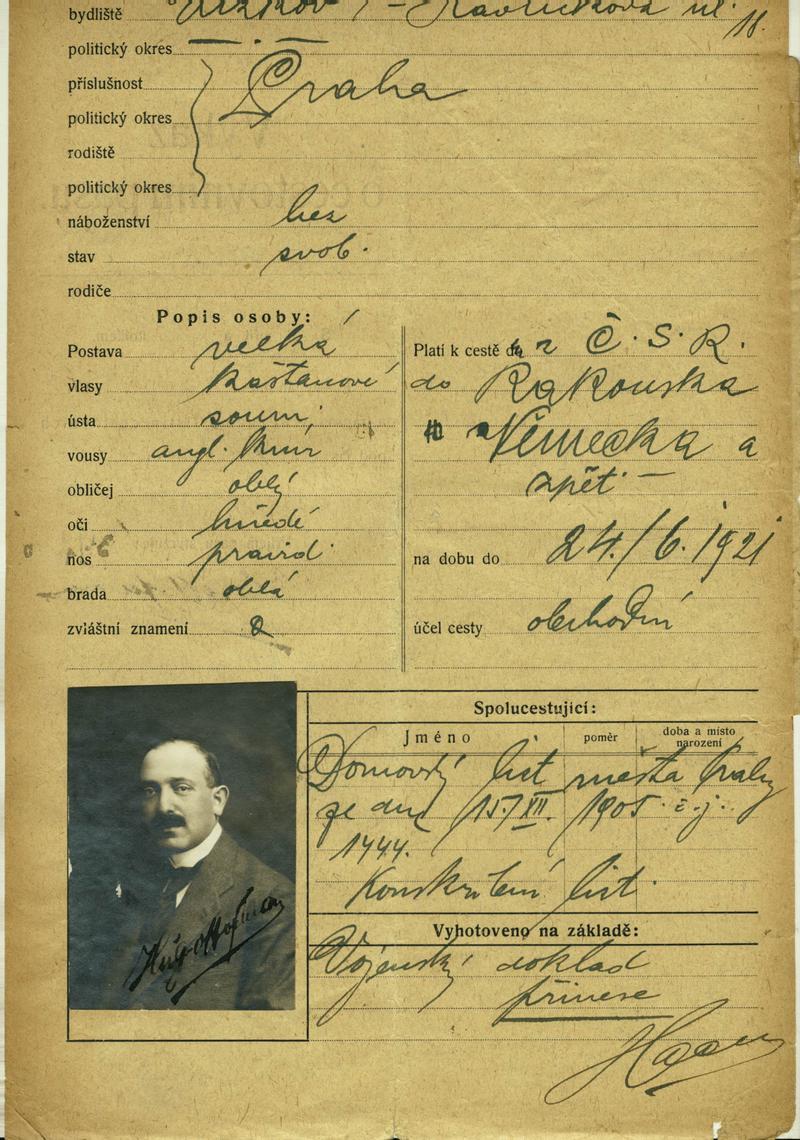 bydliště Havlíčkova ul. 18.
politický okres
příslušnost Praha
politický okres
rodiště
politický okres
náboženství bez
stav svob.
rodiče
Popis osoby:
Postava velká
vlasy kaštanové
ústa soum.
vousy angl. knír
obličej oblý
oči hnědé
nos pravid.
brada oblá
zvláštní znamení
Platí k cestě z Č. S. R.
do Rakouska
Německa a
zpět. —
na dobu do 24./6. 1921
účel cesty obchodní
Spolucestující:
Jméno poměr doba a místo narození
Domovský list města Prahy
ze dne 15./XII. 1905 č. j.
1744.
Konskribční list.
Vyhotoveno na základě:
Vojenský doklad
přinese
Hugo Hofman